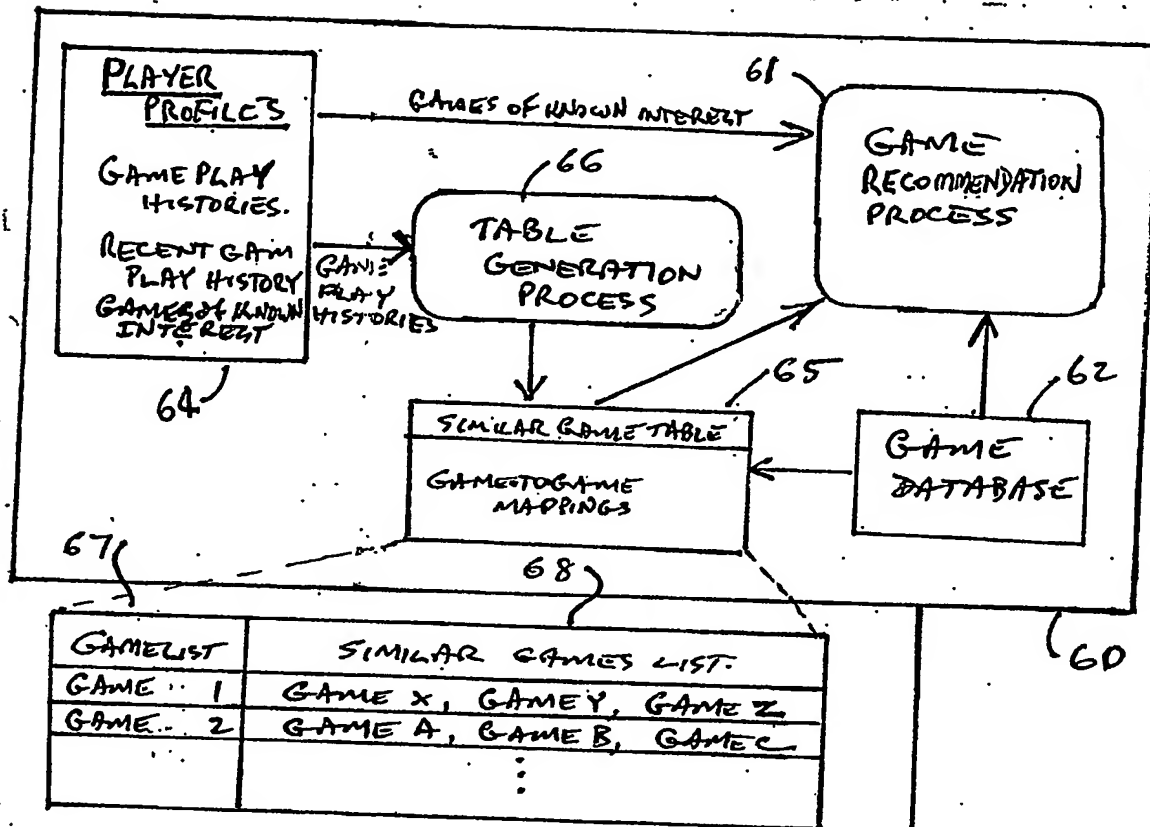 PLAYER
PROFILES
GAME PLAY
HISTORIES.
RECENT GAM
PLAY HISTORY
GAMES of KNOWN
INTEREST
64
GAMES OF KNOWN INTEREST
GAME
PLAY
HISTORIES
66
TABLE
GENERATION
PROCESS
61
GAME
RECOMMENDATION
PROCESS
65
SIMILAR GAME TABLE
GAME TO GAME
MAPPINGS
62
GAME
DATABASE
67
68
60
GAMELIST SIMILAR GAMES LIST.
GAME 1 GAME X, GAME Y, GAME Z
GAME 2 GAME A, GAME B, GAME C